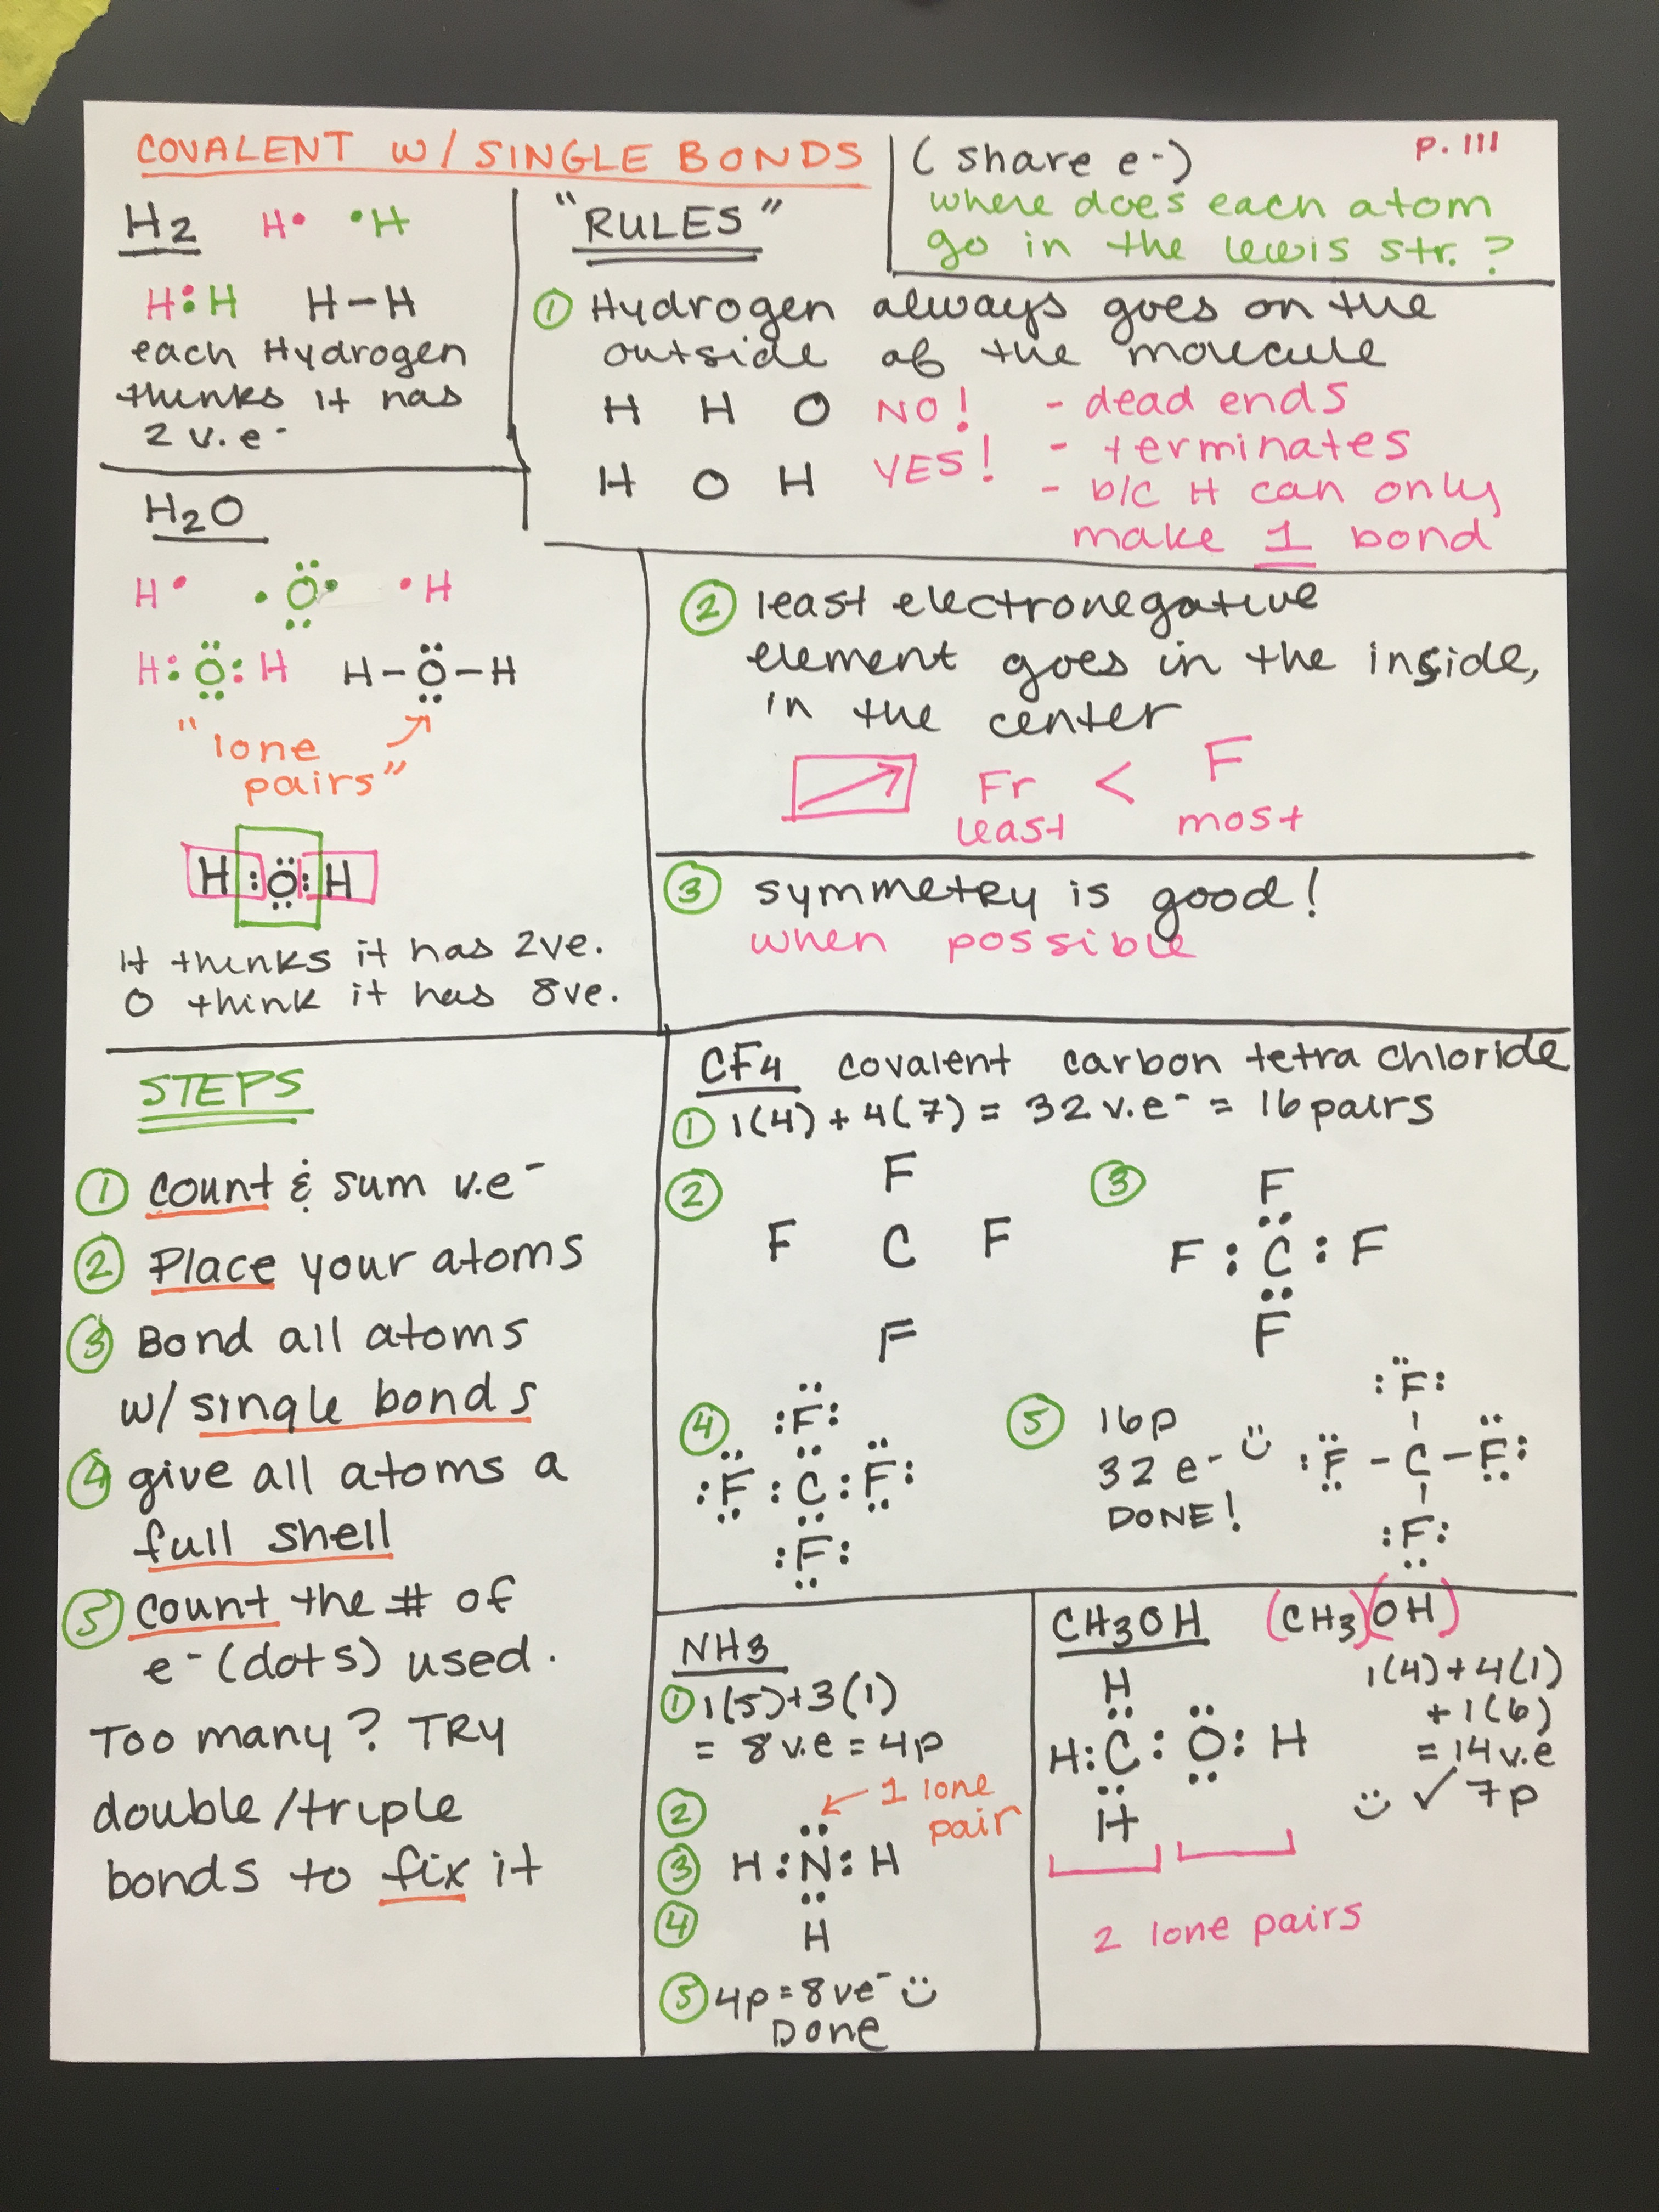 COVALENT W/ SINGLE BONDS
(share e-)
p. 111
where does each atom
go in the lewis str.?
H2 H• •H
H:H H–H
each Hydrogen
thinks it has
2 v.e-
"RULES"
① Hydrogen always goes on the
outside of the molecule
H H O NO!
H O H YES!
- dead ends
- terminates
- b/c H can only
make 1 bond
H2O
H• •O• •H
H:O:H H–O–H
"lone
pairs"
H:O:H
H thinks it has 2ve.
O think it has 8ve.
② least electronegative
element goes in the inside,
in the center
Fr < F
least most
③ symmetry is good!
when possible
STEPS
① count & sum v.e-
② Place your atoms
③ Bond all atoms
w/ single bonds
④ give all atoms a
full shell
⑤ count the # of
e- (dots) used.
Too many? TRY
double/triple
bonds to fix it
CF4 covalent carbon tetra chloride
① 1(4) + 4(7) = 32 v.e- = 16 pairs
②
F
F C F
F
③
F
F : C : F
F
④
:F:
:F : C : F:
:F:
⑤ 16p
32 e-
DONE!
:F:
:F – C – F:
:F:
NH3
① 1(5)+3(1)
= 8 v.e = 4p
②
1 lone
pair
③ H:N:H
④ H
⑤ 4p = 8ve-
Done
CH3OH (CH3)(OH)
1(4)+4(1)
+1(6)
= 14 v.e
✓ 7p
H
H:C:O:H
H
2 lone pairs